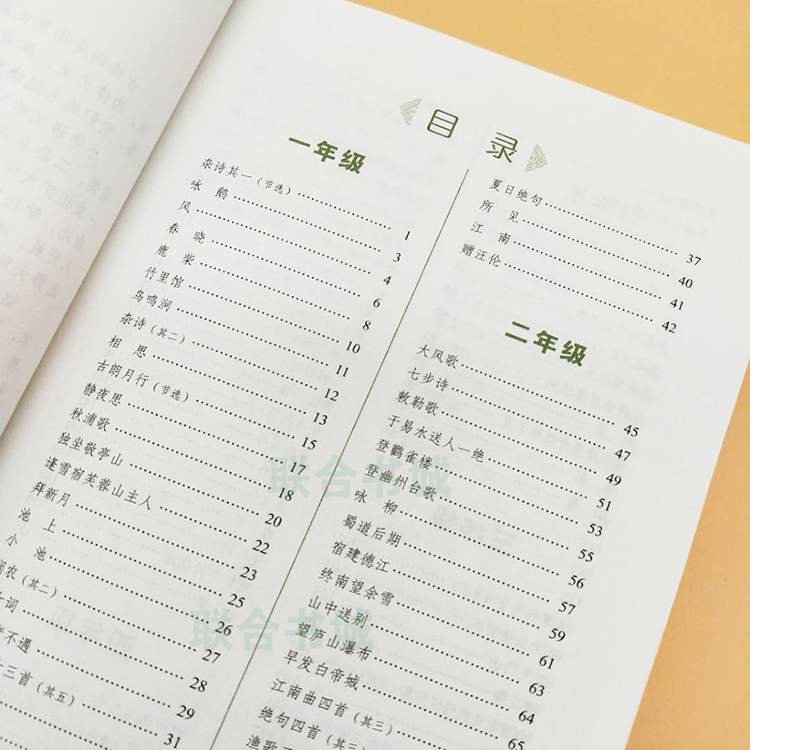 目 录
一年级
杂诗其一（节选）……1
咏 鹅……3
风……4
春 晓……6
鹿 柴……8
竹里馆……10
鸟鸣涧……11
杂诗（其二）……12
相 思……13
古朗月行（节选）……15
静夜思……17
秋浦歌……18
独坐敬亭山……20
逢雪宿芙蓉山主人……22
拜新月……23
池 上……25
小 池……26
农（其二）……27
词……28
不遇……29
三首（其五）……31
夏日绝句……37
所 见……40
江 南……41
赠汪伦……42
二年级
大风歌……45
七步诗……47
敕勒歌……49
于易水送人一绝……51
登鹳雀楼……53
登幽州台歌……55
咏 柳……56
蜀道后期……57
宿建德江……59
终南望余雪……61
山中送别……63
望庐山瀑布……64
早发白帝城……65
江南曲四首（其三）
绝句四首（其三）
渔歌
联合书城
联合书城